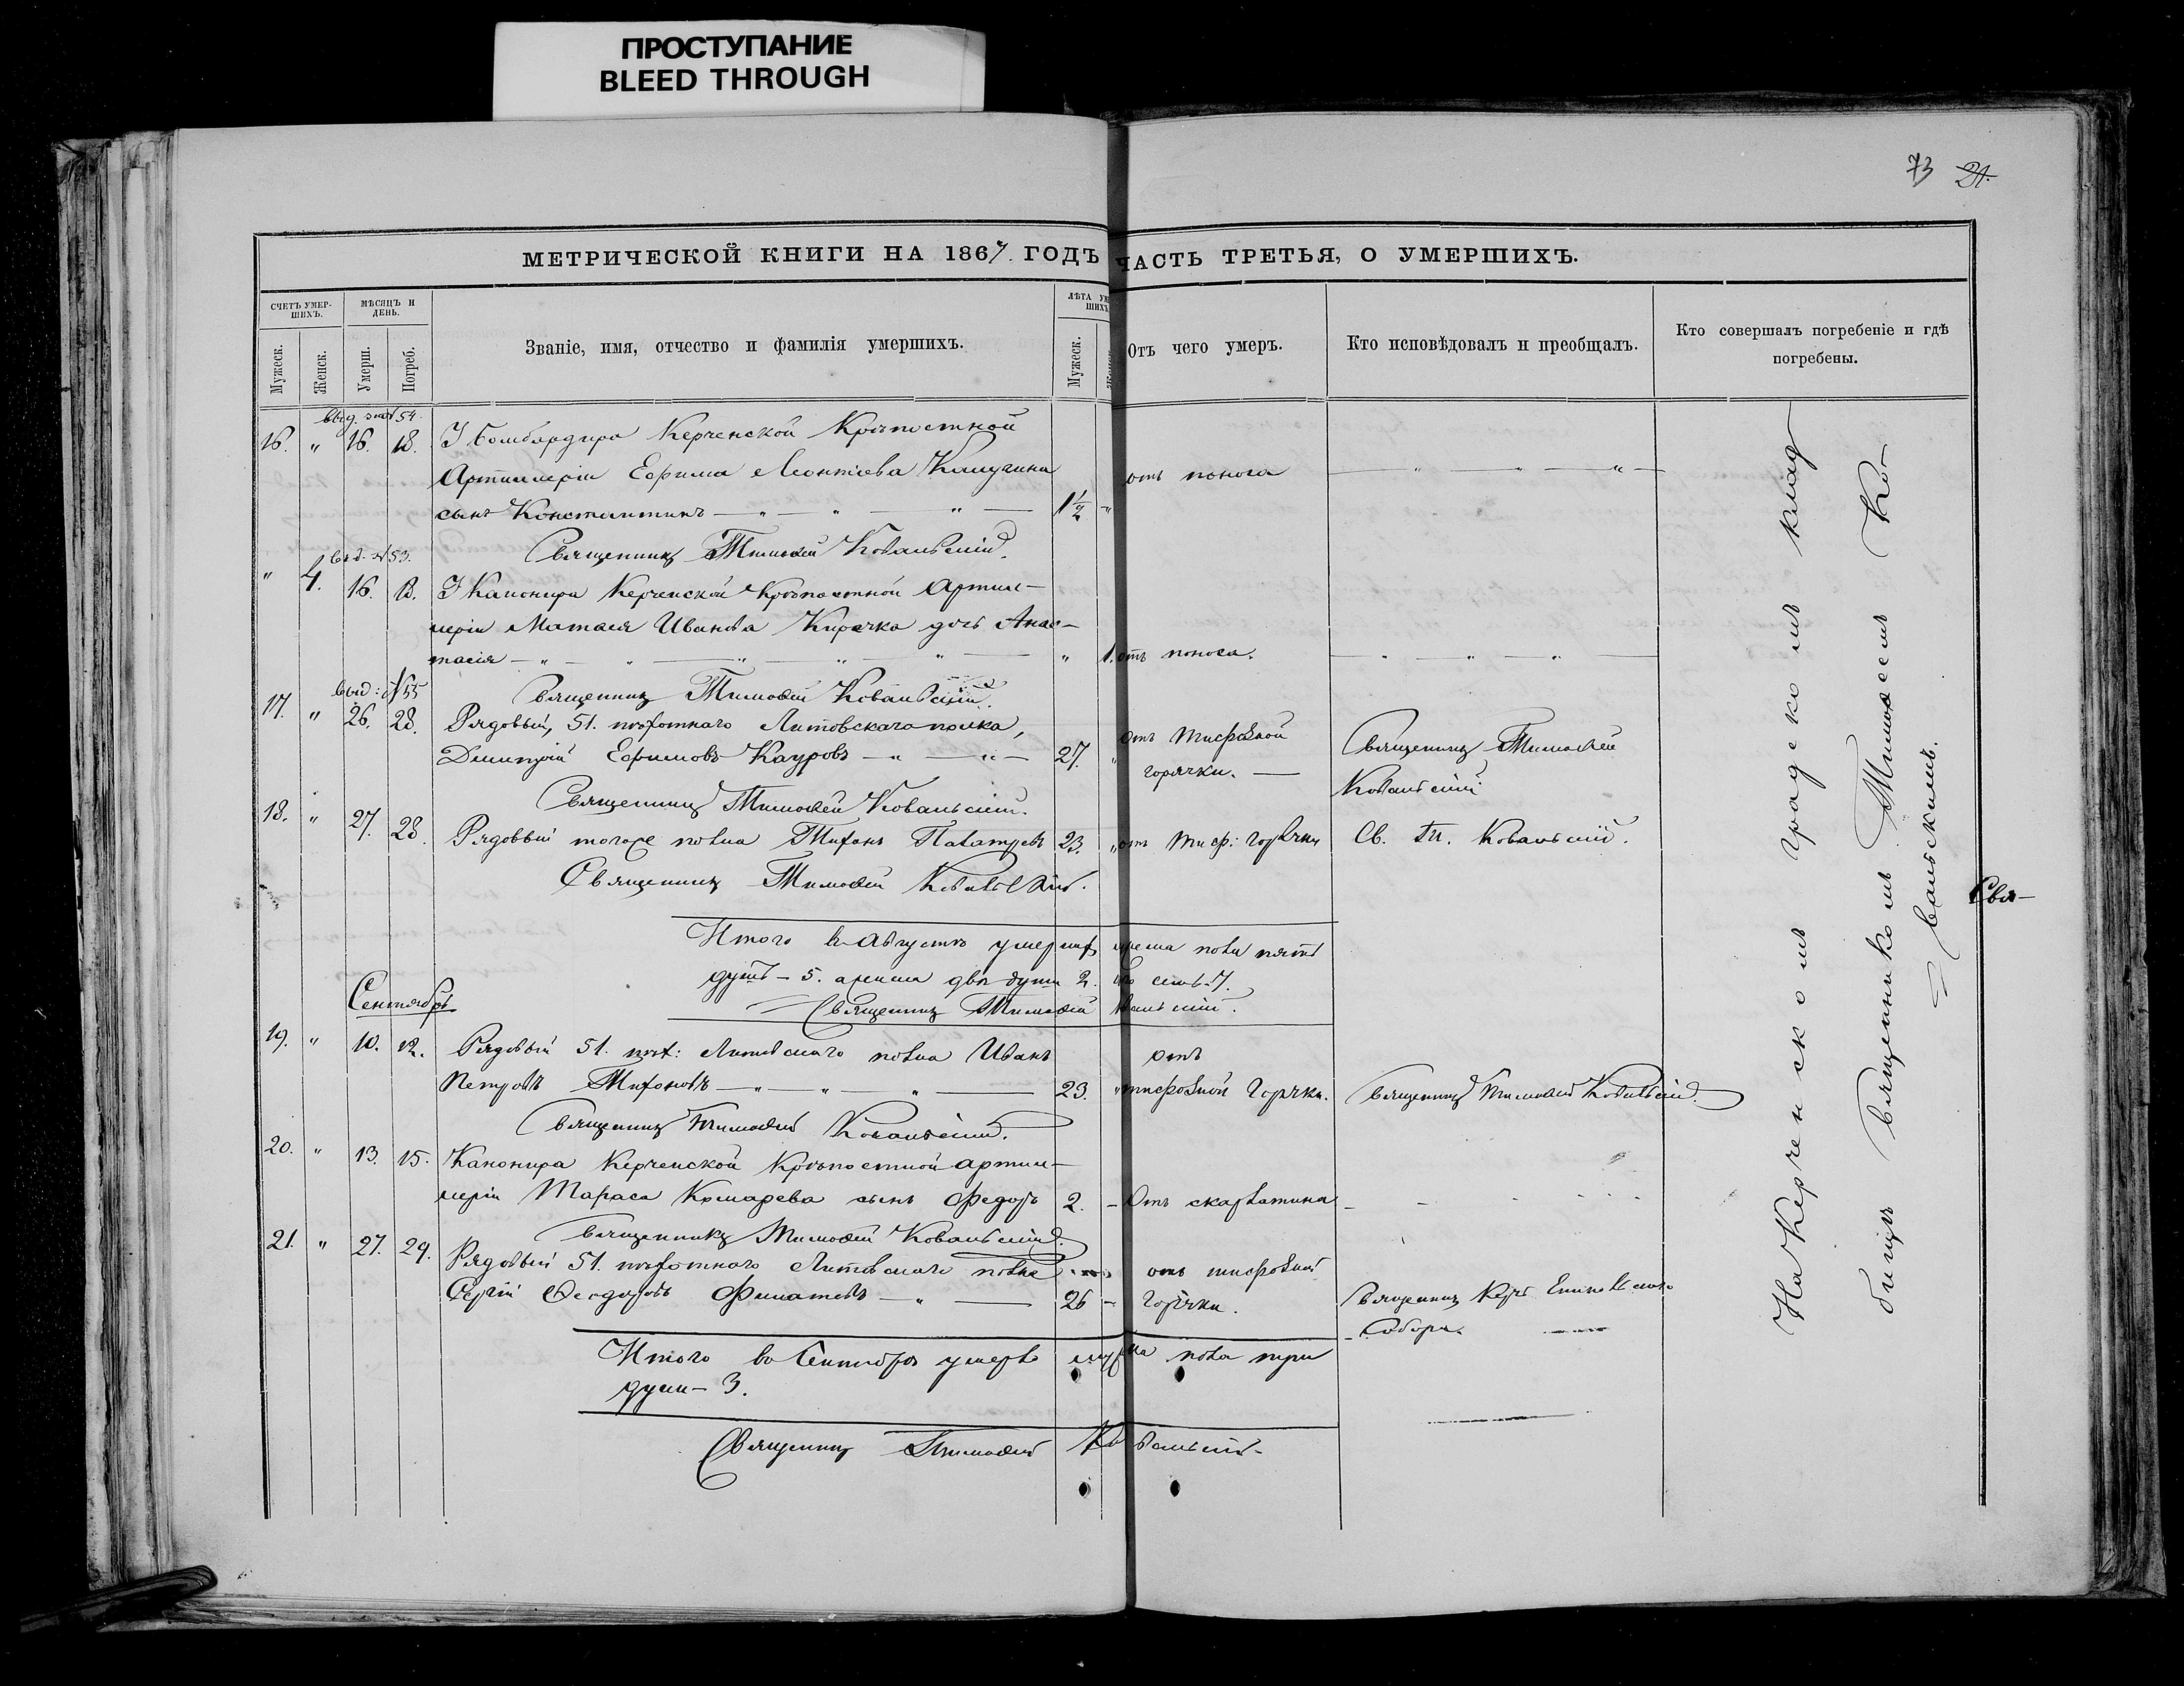 ПРОСТУПАНИЕ
BLEED THROUGH
73 21.
МЕТРИЧЕСКОЙ КНИГИ НА 1867. ГОДЪ ЧАСТЬ ТРЕТЬЯ, О УМЕРШИХЪ.
СЧЕТЪ УМЕР-
ШИХЪ.
МѢСЯЦЪ И
ДЕНЬ.
Званіе, имя, отчество и фамилія умершихъ.
ЛѢТА УМ
ШИХЪ
Отъ чего умеръ.
Кто исповѣдовалъ и преобщалъ.
Кто совершалъ погребеніе и гдѣ
погребены.
Мужеск.
Женск.
Умерш.
Погреб.
Мужеск.
Женск.
54.
16. " 16. 18. Бомбардира Керченской Крѣпостной
Артиллеріи Ефима Леонтіева
сынъ Константинъ — " — " — " — 1½ отъ поноса — " — " — " —
Священникъ Тимоѳей Ковальскій.
выд. №53.
" 4. 16. 18. Канонира Керченской Крѣпостной Артил-
леріи Матвея Иванова Кирячка дочь Анас-
тасія — " — " — " — " — " — " 1. отъ поноса. — " — " — " —
выд: №55
Священникъ Тимоѳей Ковальскій.
17. " 26. 28. Рядовый, 51. пѣхотнаго Литовскаго полка,
Димитрій Ефимовъ Кауровъ — " — " — 27. " отъ тифозной
горячки. — Священникъ Тимоѳей
Ковальскій
Священникъ Тимоѳей Ковальскій.
18. " 27. 28. Рядовый тогоже полка Тихонъ 23. " отъ тиф: горячки Св. Ти. Ковальскій.
Священникъ Тимоѳей Ковальскій.
Итого въ Августѣ умершихъ мужеска пола пять
душъ — 5. а женска двѣ души 2. семь 7.
Священникъ Тимоѳей Ковальскій.
Сентябрь
19. " 10. 12. Рядовый 51. пѣх: Литовскаго полка Иванъ
Петровъ Тихоновъ — " — " — " — 23. " отъ
тифозной Горячки. Священникъ Тимоѳей Ковальскій.
Священникъ Тимоѳей Ковальскій.
20. " 13. 15. Канонира Керченской Крѣпостной артил-
леріи Тараса Комарева сынъ Федоръ 2. — Отъ скарлатина —
Священникъ Тимоѳей Ковальскій.
21. " 27. 29. Рядовый 51. пѣхотнаго Литовскаго полка
Сергій Ѳеодоровъ Филатовъ — " — 26 — отъ тифозной
Горячки. Священникъ Керч Еникольскаго
Собора.
Итого въ Сентябрѣ умерло мужска пола три
души — 3.
Священникъ Тимоѳей Ковальскій.
На Керченскомъ градскомъ клад
бищѣ Священникомъ Тимоѳеемъ Ко-
вальскимъ.
Свя-